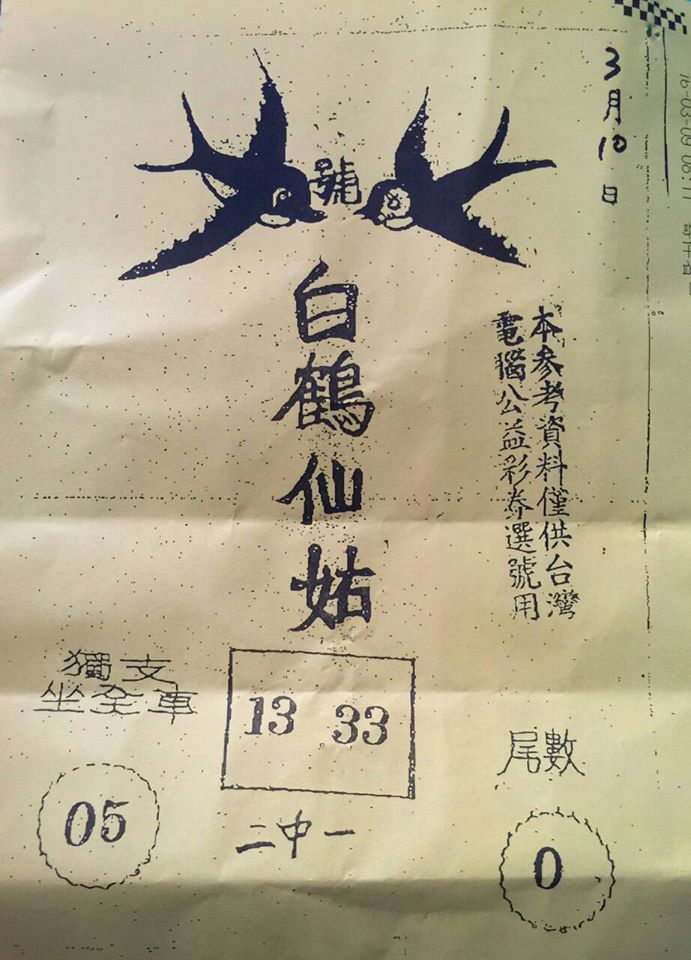 3月10日
16-03-09 08:11
號
白鶴仙姑
本參考資料僅供台灣
電腦公益彩券選號用
獨支
坐全車
05
13 33
二中一
尾數
0